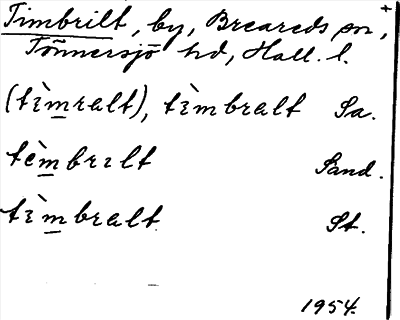 Timbrilt, by, Breareds sn,
Tönnersjö hd, Hall. l.
(tìmralt), tìmbralt Sa.
tèmbrılt Sand.
tìmbralt St.
1954.